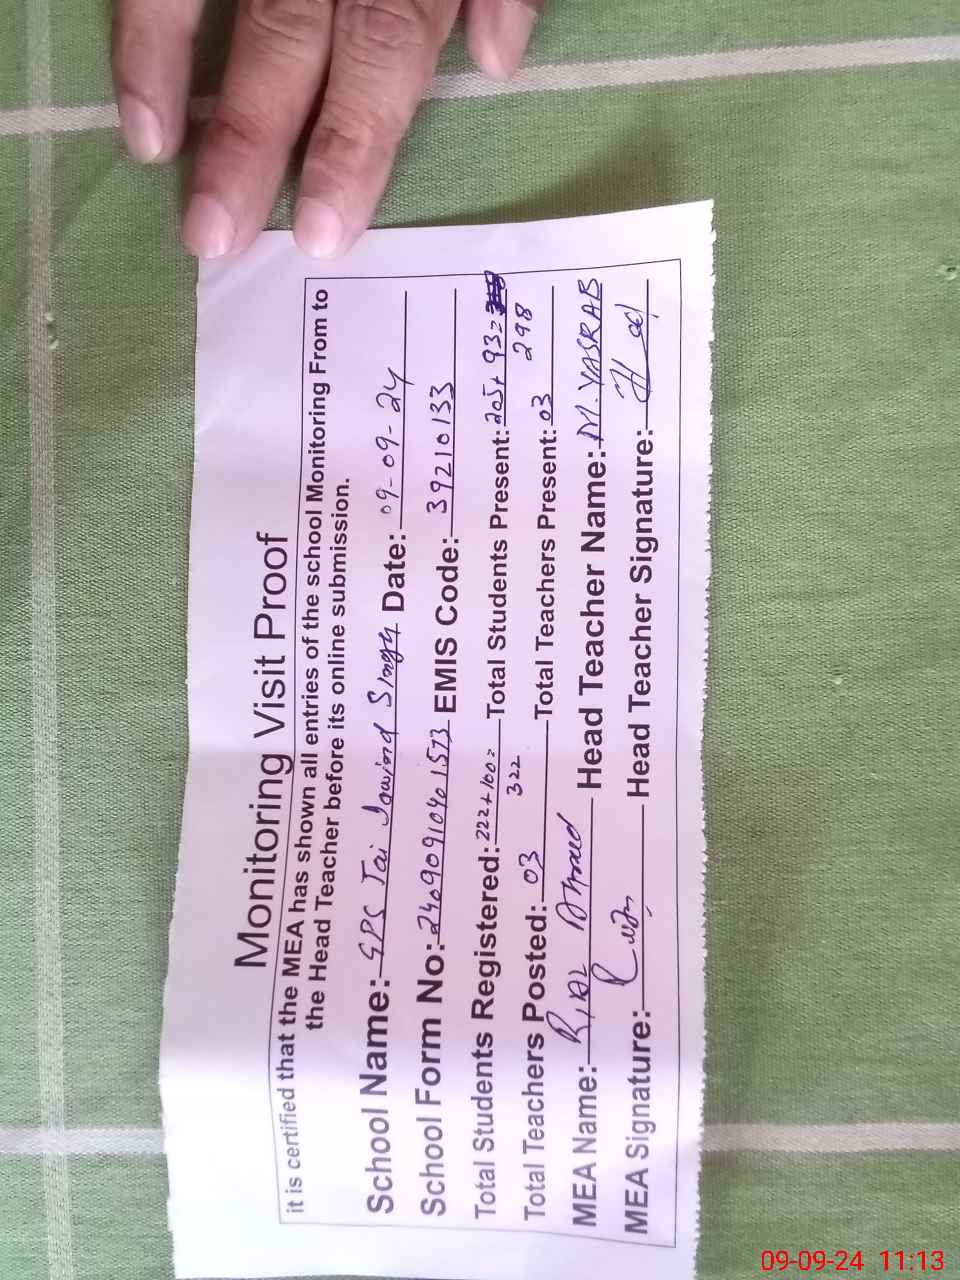 Monitoring Visit Proof
it is certified that the MEA has shown all entries of the school Monitoring From to
the Head Teacher before its online submission.
School Name: GPS Jai Gowind Singh Date: 09-09-24
School Form No: 24090910401573 EMIS Code: 39210133
Total Students Registered: 222+100= 322 Total Students Present: 205+ 93= 298
Total Teachers Posted: 03 Total Teachers Present: 03
MEA Name: Rizal Ahmed Head Teacher Name: M. YASRAB
MEA Signature: Head Teacher Signature:
09-09-24 11:13